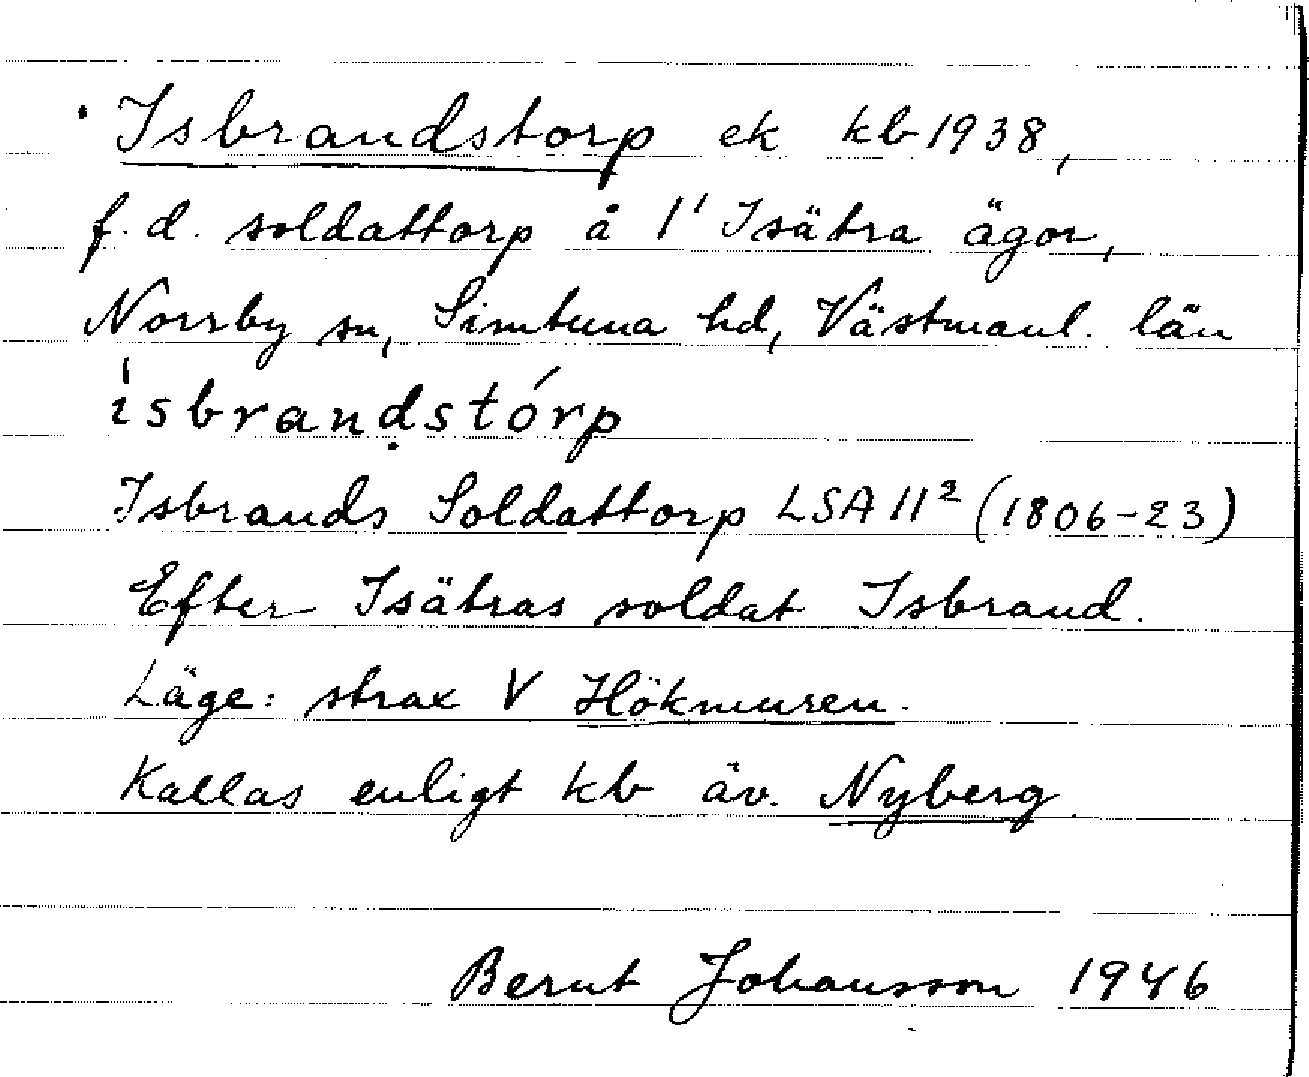 Isbrandstorp ek kb 1938,
f.d. soldattorp å 1' Isätra ägor,
Norrby sn, Simtuna hd, Västmanl. län
ísbranḍstórp
Isbrands Soldattorp LSA 11² (1806-23)
Efter Isätras soldat Isbrand.
Läge: strax V Hökmuren.
Kallas enligt kb äv. Nyberg.
Bernt Johansson 1946